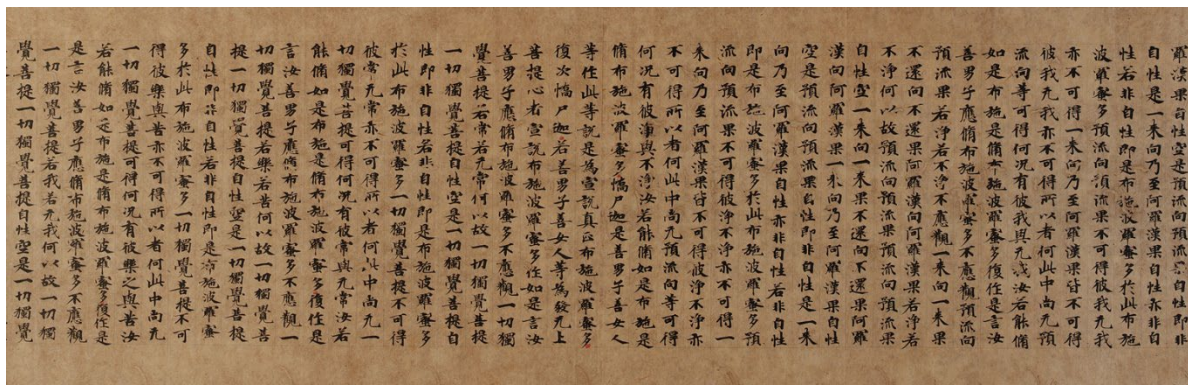 羅漢果自性空是預流向預流果自性即非
自性是一來向乃至阿羅漢果自性亦非自
性若非自性即是布施波羅蜜多於此布施
波羅蜜多預流向預流果不可得彼我无我
亦不可得一來向乃至阿羅漢果皆不可得
彼我无我亦不可得所以者何此中尚无預
流向等可得何況有彼我與无我汝若能脩
如是布施是脩布施波羅蜜多復作是言汝
善男子應脩布施波羅蜜多不應觀預流向
預流果若淨若不淨不應觀一來向一來果
不還向不還果阿羅漢向阿羅漢果若淨若
不淨何以故預流向預流果預流向預流果
自性空一來向一來果不還向不還果阿羅
漢向阿羅漢果一來向乃至阿羅漢果自性
空是預流向預流果自性即非自性是一來
向乃至阿羅漢果自性亦非自性若非自性
即是布施波羅蜜多於此布施波羅蜜多預
流向預流果不可得彼淨不淨亦不可得一
來向乃至阿羅漢果皆不可得彼淨不淨亦
不可得所以者何此中尚无預流向等可得
何況有彼淨與不淨汝若能脩如是布施是
脩布施波羅蜜多憍尸迦是善男子善女人
等作此等說是為宣說真正布施波羅蜜多
復次憍尸迦若善男子善女人等為發无上
菩提心者宣說布施波羅蜜多作如是言汝
善男子應脩布施波羅蜜多不應觀一切獨
覺菩提若常若无常何以故一切獨覺菩提
一切獨覺菩提自性空是一切獨覺菩提自
性即非自性若非自性即是布施波羅蜜多
於此布施波羅蜜多一切獨覺菩提不可得
彼常无常亦不可得所以者何此中尚无一
切獨覺菩提可得何況有彼常與无常汝若
能脩如是布施是脩布施波羅蜜多復作是
言汝善男子應脩布施波羅蜜多不應觀一
切獨覺菩提若樂若苦何以故一切獨覺菩
提一切獨覺菩提自性空是一切獨覺菩提
自性即非自性若非自性即是布施波羅蜜
多於此布施波羅蜜多一切獨覺菩提不可
得彼樂與苦亦不可得所以者何此中尚无
一切獨覺菩提可得何況有彼樂之與苦汝
若能脩如是布施是脩布施波羅蜜多復作
是言汝善男子應脩布施波羅蜜多不應觀
一切獨覺菩提若我若无我何以故一切獨
覺菩提一切獨覺菩提自性空是一切獨覺